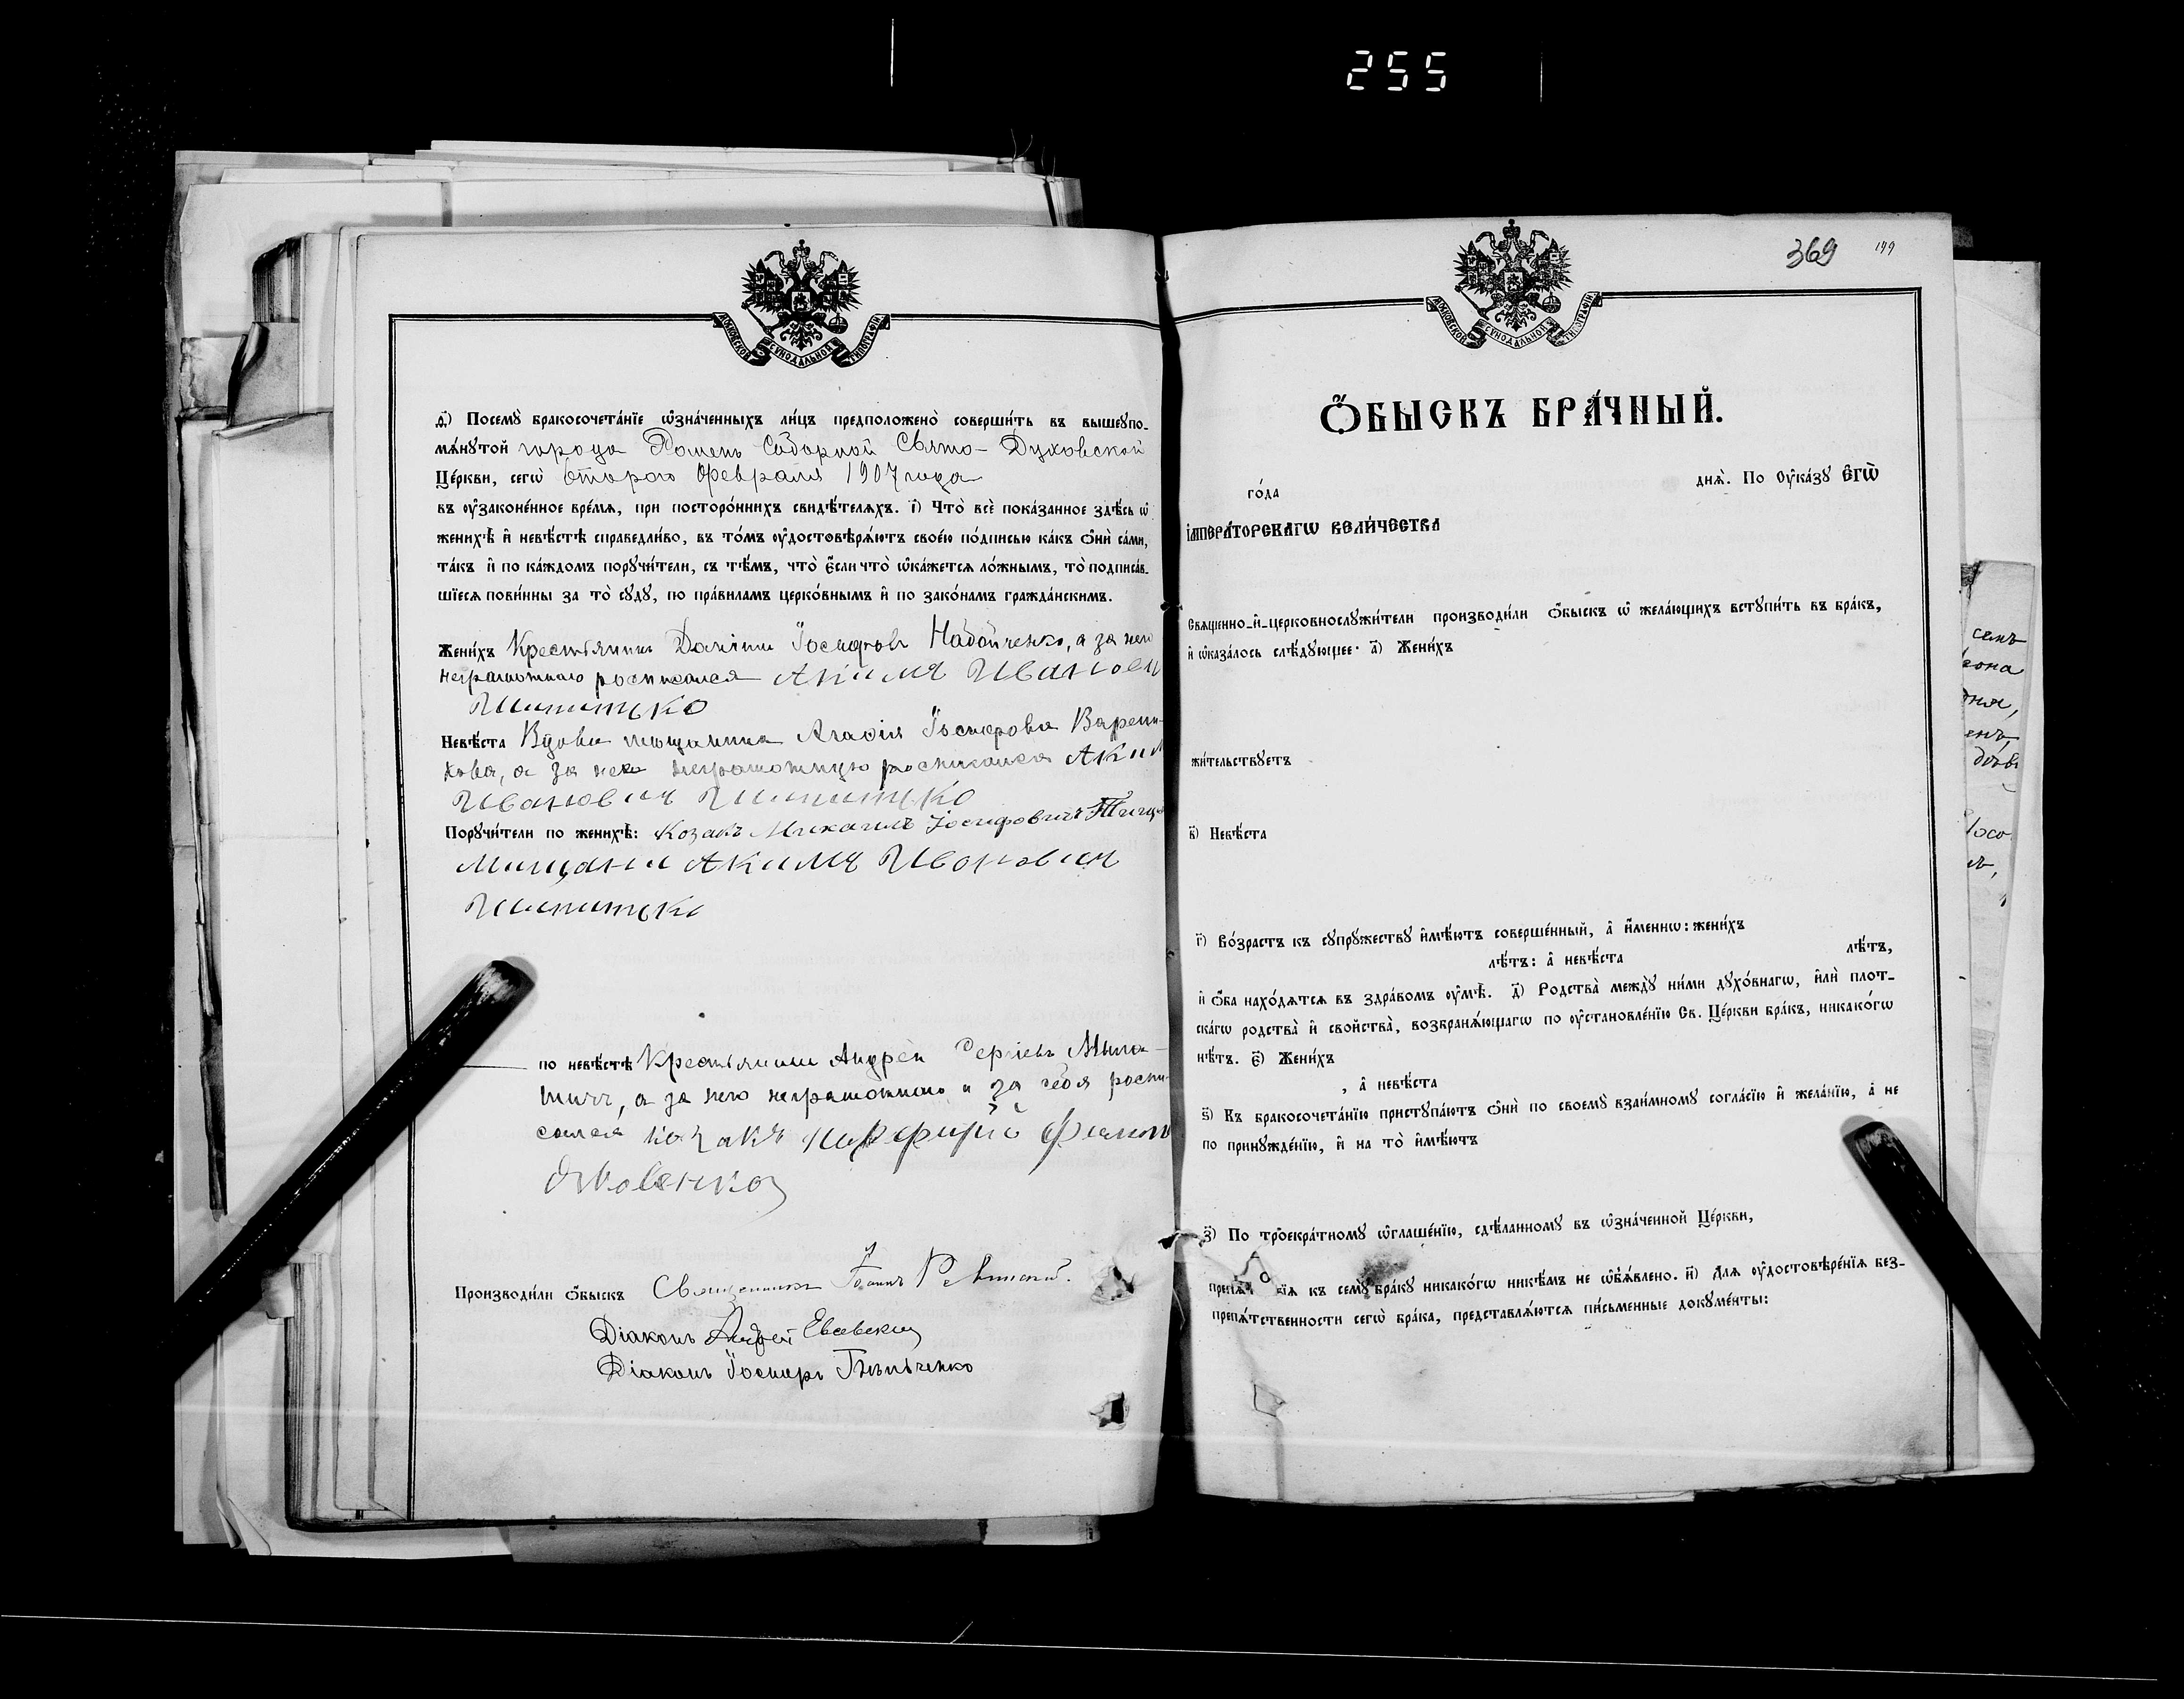 255
МОСКОВСКОЙ СѴНОДАЛЬНОЙ ТИПОГРАФІИ
д҃) Посемꙋ̀ бракосочета́нїе ѡ҆зна́ченныхъ ли́цъ предположено̀ соверши́ть въ вышеꙋпо-
мѧ́нꙋтой города Роменъ Соборной Свято-Духовской
Це́ркви, сегѡ̀ второго Февраля 1907 года
въ ѹ҆зако́ненное вре́мѧ, при посторо́ннихъ свидѣ́телѧхъ. і҃) Что̀ всѐ пока́занное здѣ́сь ѡ҆
женихѣ̀ и҆ невѣ́стѣ справедли́во, въ то́мъ ѹ҆достовѣрѧ́ютъ свое́ю по́дписью ка́къ ѻ҆нѝ са́ми,
та́къ и҆ по ка́ждомъ порꙋчи́тели, съ тѣ́мъ, что̀ є҆́сли что̀ ѡ҆ка́жетсѧ ло́жнымъ, то̀ подписа́в-
шїесѧ пови́нны за то̀ сꙋдꙋ̀, по пра́виламъ церко́внымъ и҆ по зако́намъ гражда́нскимъ.
Жени́хъ Крестьянинъ Даніилъ Іосифовъ Набойченко, а за него
неграмотнаго росписался Акимъ Иванови
Шпитько
Невѣ́ста Вдова мѣщанка Агафія Іосифова Варени-
кова, а за нея неграмотную росписался Аким
Ивановичъ Шпитько
Порꙋчи́тели по женихѣ̀: Козакъ Михаилъ Іосифовичъ
Мищани Акимъ Ивановичъ
по невѣ́стѣ Крестьянинъ Андрей Сергіевъ
а за него неграмотнаго и за себя роспи-
сался казакъ
Яковенко
Производи́ли ѻ҆́быскъ Священникъ Іоаннъ
Діаконъ Андрей
Діаконъ Іосифъ
369 199
МОСКОВСКОЙ СѴНОДАЛЬНОЙ ТИПОГРАФІИ
Ѻ҆́БЫСКЪ БРА́ЧНЫЙ.
го́да днѧ̀. По Оу҆ка́зꙋ Є҆ГѠ̀
І҆МПЕРА́ТОРСКАГѠ ВЕЛИ́ЧЕСТВА
Свѧще́нно-и҆-церковнослꙋжи́тели производи́ли ѻ҆́быскъ ѡ҆ жела́ющихъ встꙋпи́ть въ бра́къ,
и҆ ѡ҆каза́лось слѣ́дꙋющее: а҃) Жени́хъ
жи́тельствꙋетъ
в҃) Невѣ́ста
г҃) Во́зрастъ къ сꙋпрꙋ́жествꙋ и҆мѣ́ютъ соверше́нный, а҆ и҆́меннѡ: жени́хъ
лѣ́тъ: а҆ невѣ́ста лѣ́тъ,
и҆ ѻ҆́ба нахо́дѧтсѧ въ здра́вомъ ѹ҆мѣ̀. д҃) Родства̀ междꙋ̀ ни́ми дꙋхо́внагѡ, и҆лѝ плот-
ска́гѡ родства̀ и҆ свойства̀, возбранѧ́ющагѡ по ѹ҆становле́нїю Св. Це́ркви бра́къ, никако́гѡ
нѣ́тъ. є҃) Жени́хъ
, а҆ невѣ́ста
ѕ҃) Къ бракосочета́нїю пристꙋпа́ютъ ѻ҆нѝ по своемꙋ̀ взаи́мномꙋ согла́сїю и҆ жела́нїю, а҆ не
по принꙋжде́нїю, и҆ на то̀ и҆мѣ́ютъ
з҃) По трое́кра́тномꙋ ѡ҆глаше́нїю, сдѣ́ланномꙋ въ ѡ҆зна́ченной Це́ркви,
къ семꙋ̀ бра́кꙋ никако́гѡ никѣ́мъ не ѡ҆б̾ѧ́влено. и҃) Длѧ ѹ҆достовѣре́нїѧ без-
препѧ́тственности сегѡ̀ бра́ка, представлѧ́ютсѧ пи́сьменные докꙋме́нты: